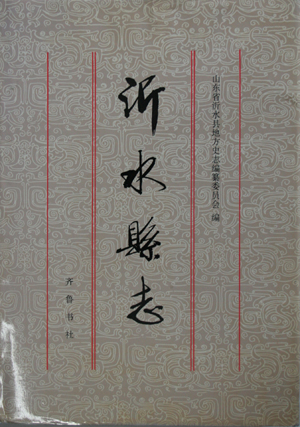 山东省沂水县地方史志编纂委员会编
沂水縣志
齐鲁书社